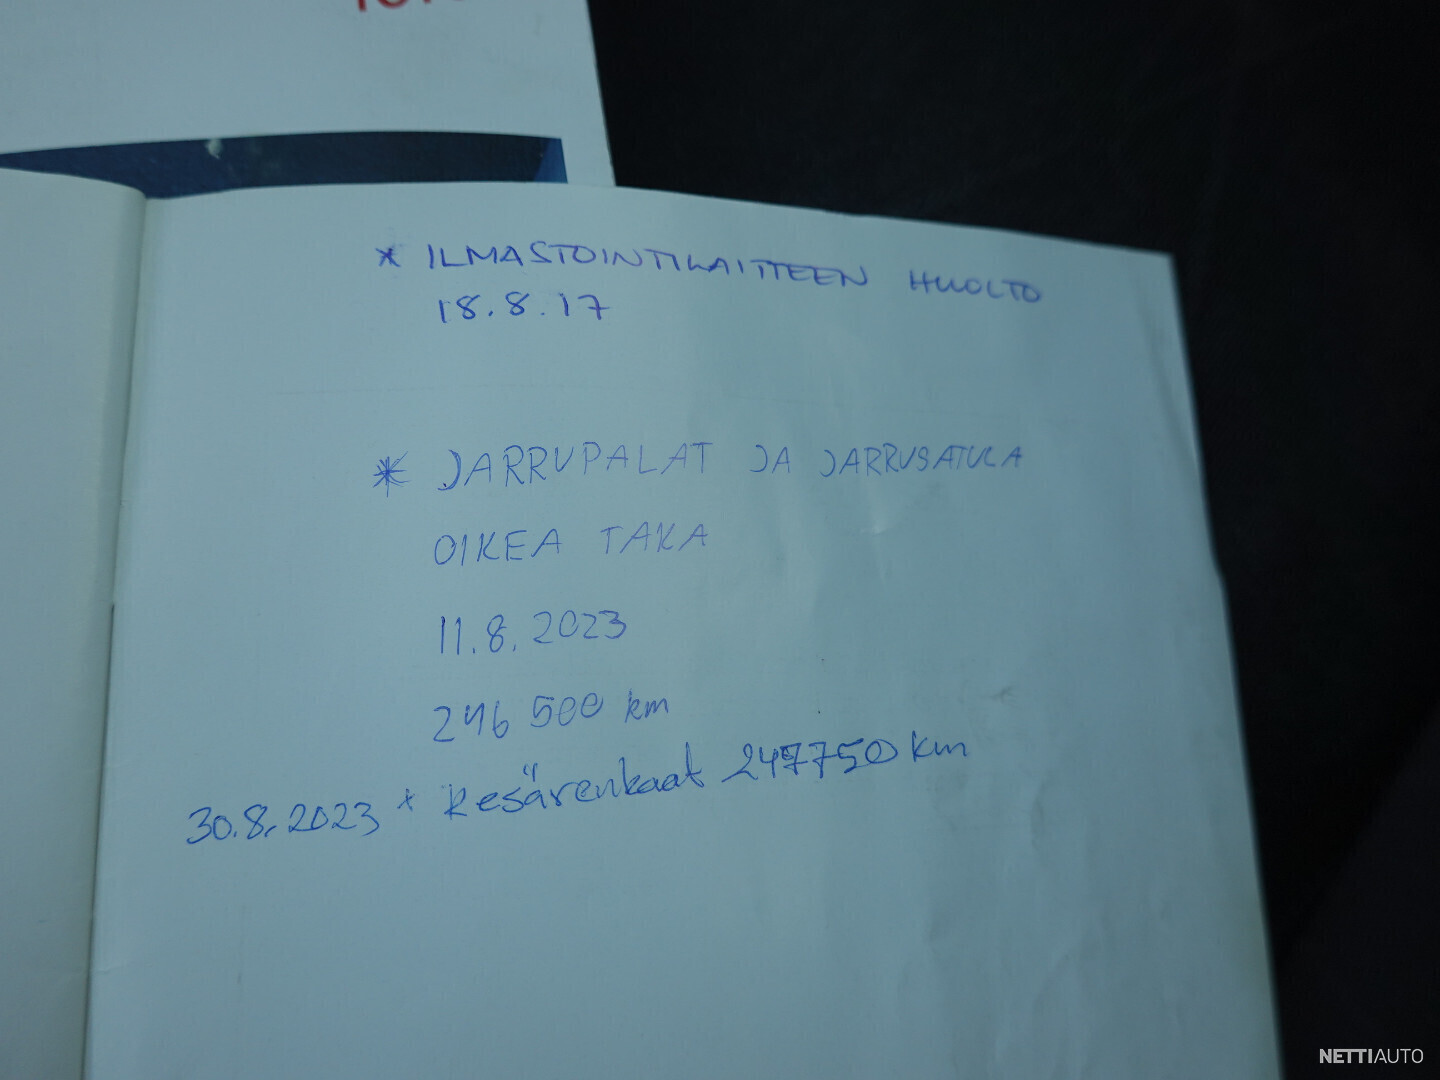 * ILMASTOINTILAITTEEN HUOLTO
18.8.17
* JARRUPALAT JA JARRUSATULA
OIKEA TAKA
11.8.2023
246 500 km
30.8.2023 * Kesärenkaat 247750 km
NETTIAUTO